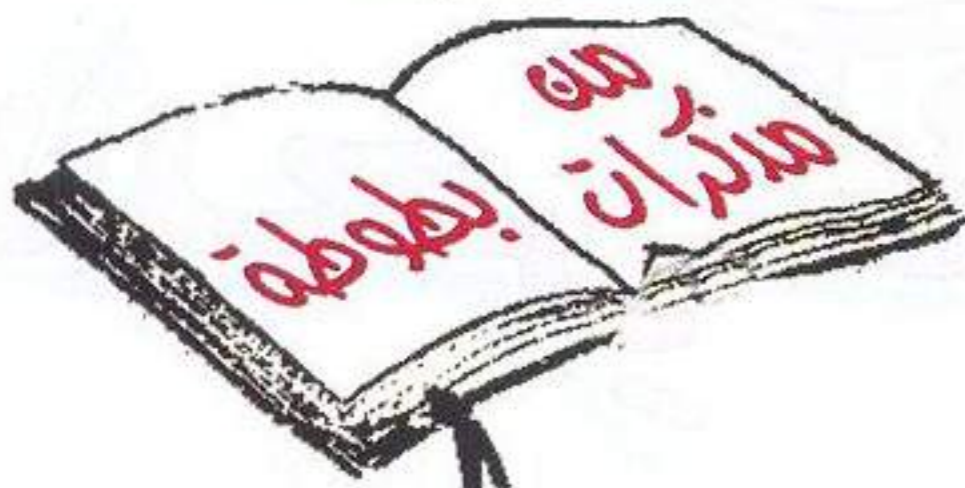 من
مذكرات
بطوطة